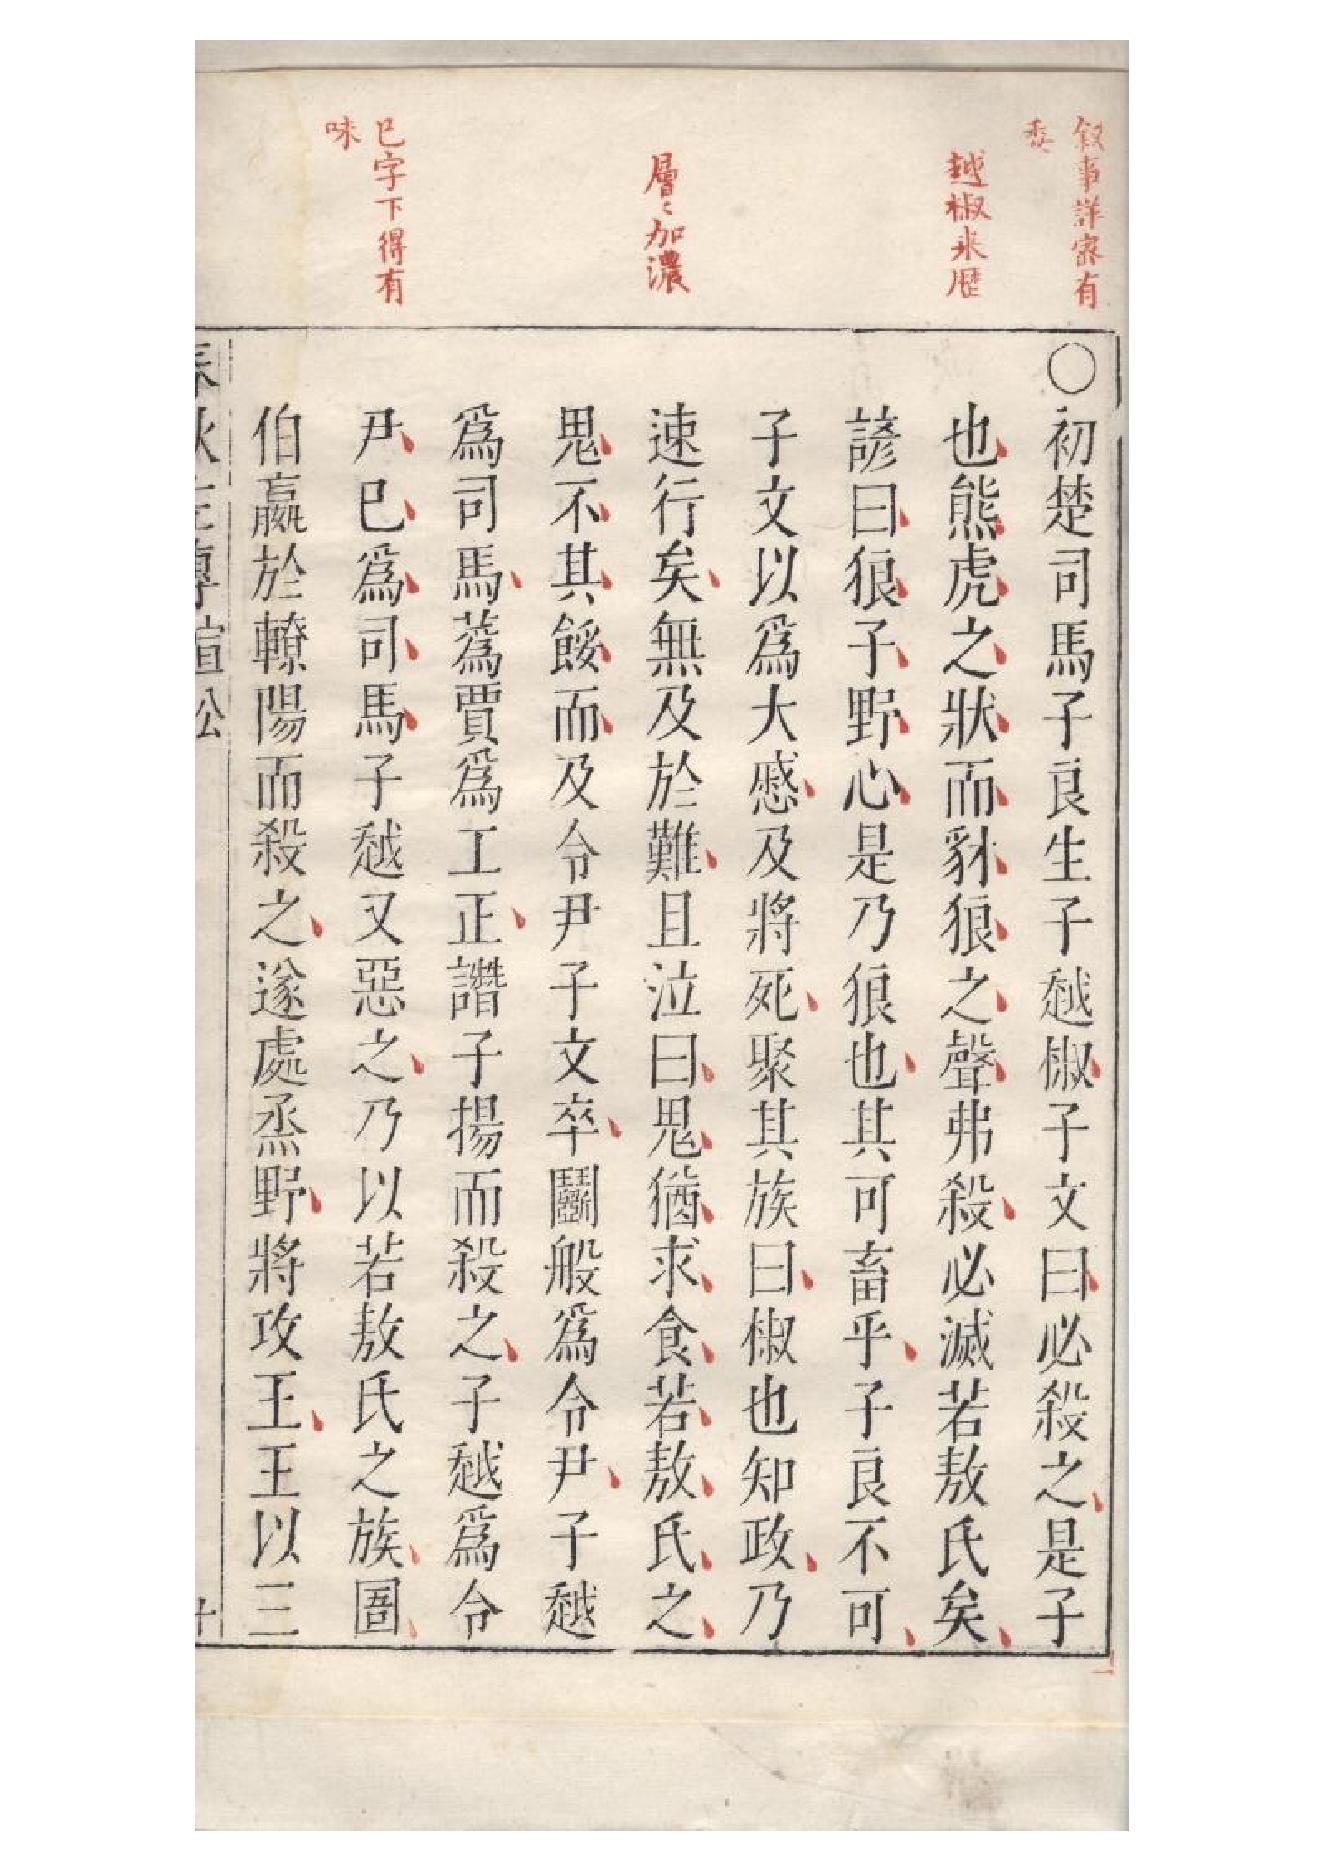 叙事詳密有
委
越椒来歴
層〻加濃
巳字下得有
味
○初楚司馬子良生子越椒子文曰必殺之是子
也熊虎之狀而豺狼之聲弗殺必滅若敖氏矣
諺曰狼子野心是乃狼也其可畜乎子良不可
子文以爲大慼及將死聚其族曰椒也知政乃
速行矣無及於難且泣曰鬼猶求食若敖氏之
鬼不其餒而及令尹子文卒鬭般爲令尹子越
爲司馬蒍賈爲工正譖子揚而殺之子越爲令
尹巳爲司馬子越又惡之乃以若敖氏之族圄
伯嬴於轑陽而殺之遂處烝野將攻王王以三
春秋左傳宣公
十